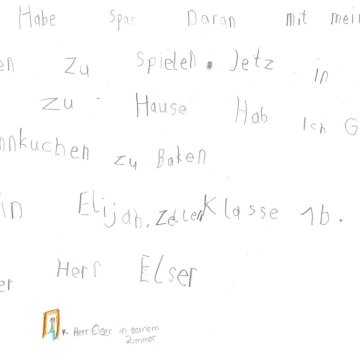 Habe Spas Daran mit mei
en zu Spielen. Jetz in
zu Hause Hab Ich G
nnkuchen zu Baken
in Elijah. Zeller Klasse 1b.
er Herr Elser
Herr Elser in seinem
Zimmer